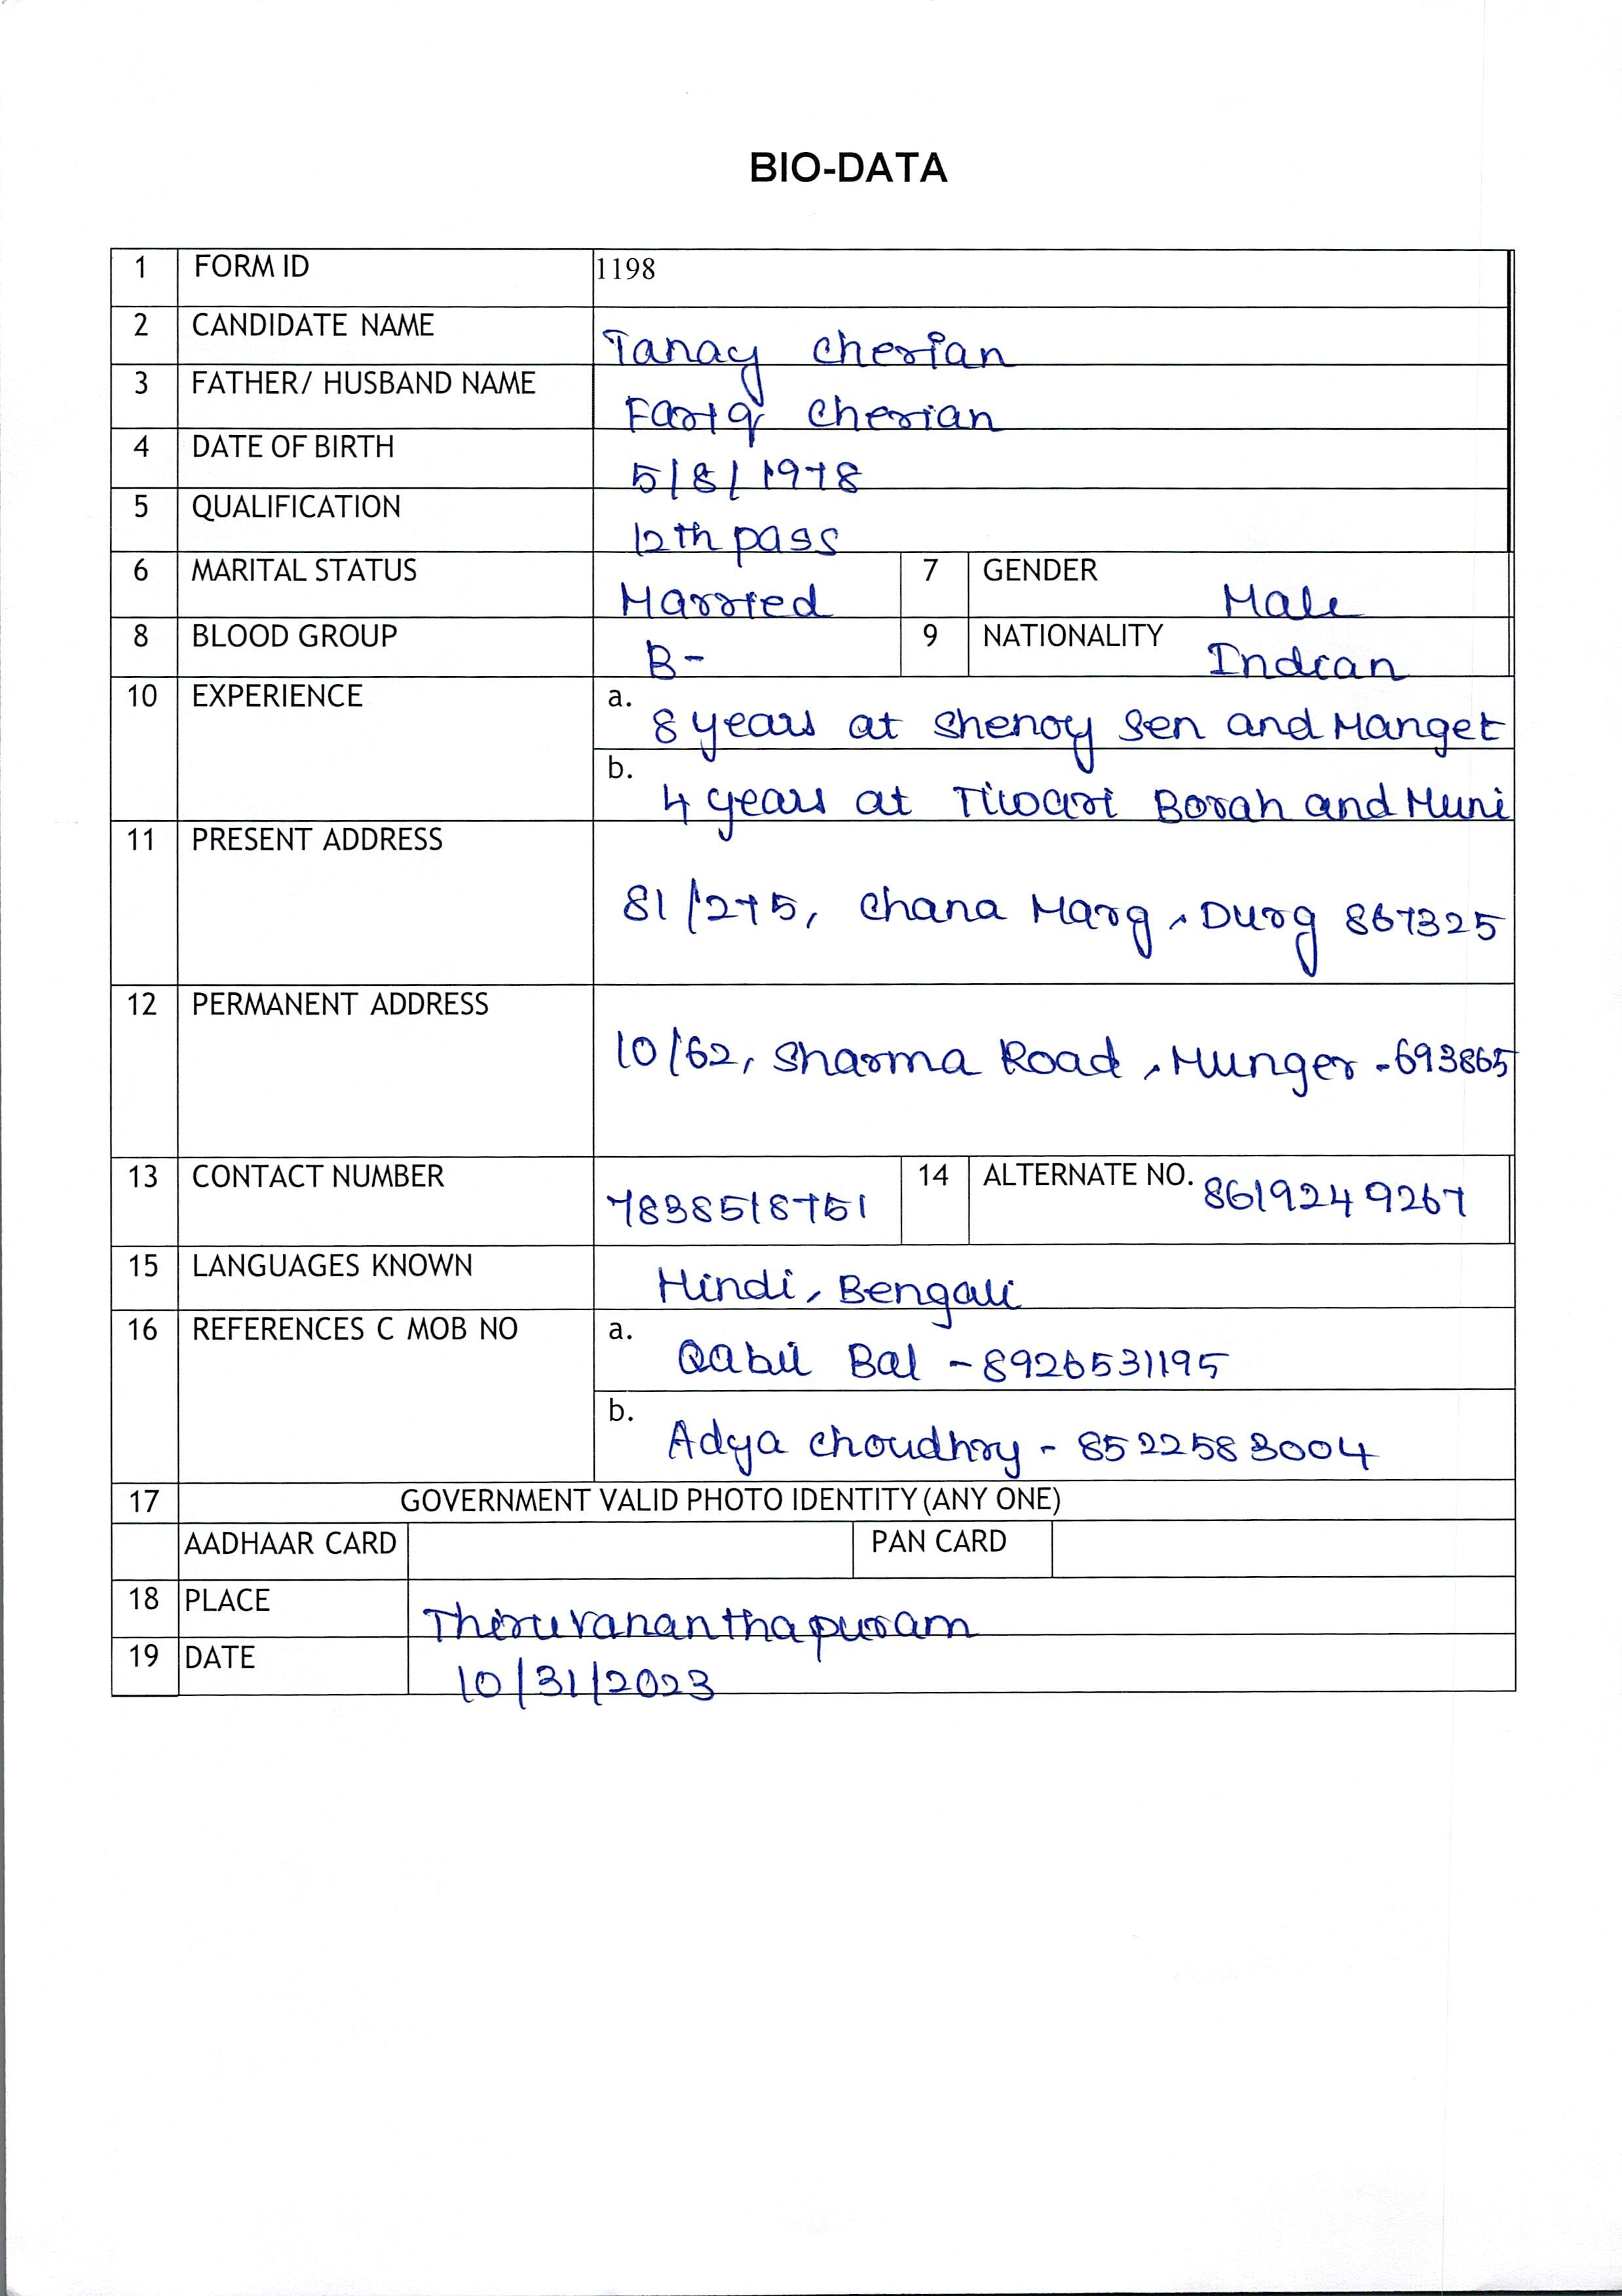 BIO-DATA
1 FORM ID 1198
2 CANDIDATE NAME Tanay Cherian
3 FATHER/ HUSBAND NAME Fariq Cherian
4 DATE OF BIRTH 5/8/1978
5 QUALIFICATION 12th pass
6 MARITAL STATUS Married 7 GENDER Male
8 BLOOD GROUP B- 9 NATIONALITY Indian
10 EXPERIENCE a. 8 years at Shenoy Sen and Manget
b. 4 years at Tiwari Borah and Muni
11 PRESENT ADDRESS 81/275, Chana Marg, Durg 867325
12 PERMANENT ADDRESS 10/62, Sharma Road, Munger -693865
13 CONTACT NUMBER 7838518751 14 ALTERNATE NO. 8619249267
15 LANGUAGES KNOWN Hindi, Bengali
16 REFERENCES C MOB NO a. Qabil Bal - 8926531195
b. Adya Choudhry - 8522583004
17 GOVERNMENT VALID PHOTO IDENTITY (ANY ONE)
AADHAAR CARD PAN CARD
18 PLACE Thiruvananthapuram
19 DATE 10/31/2023